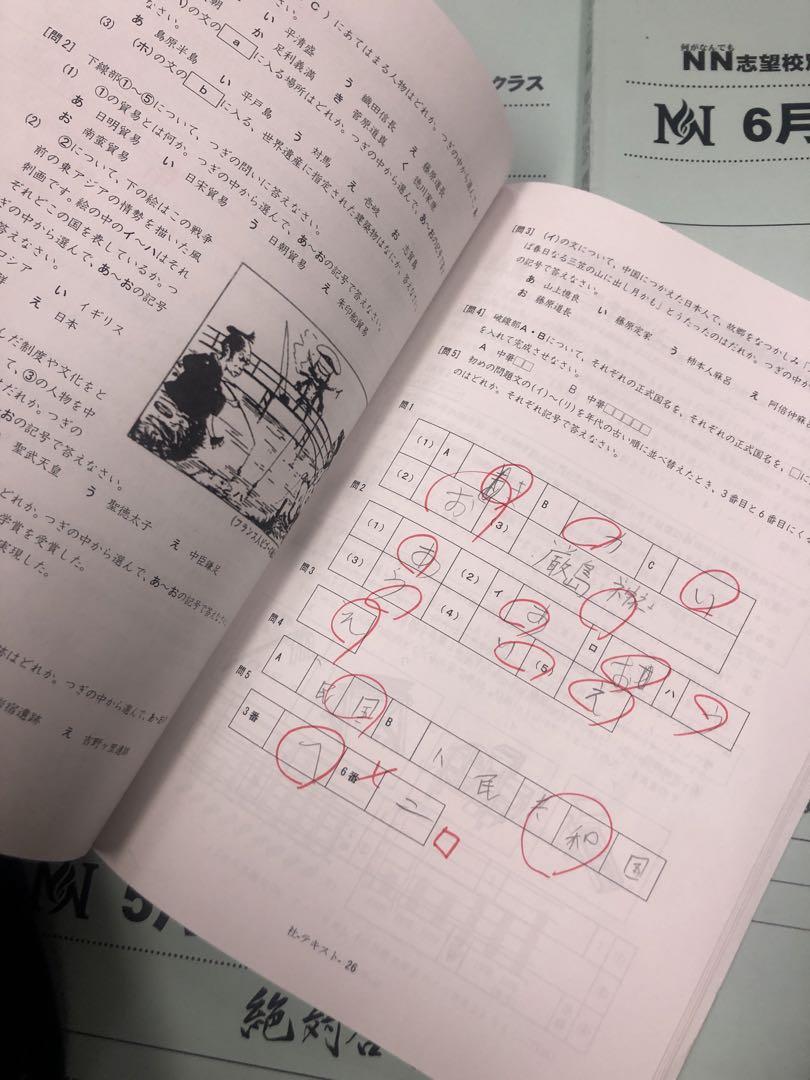 C）にあてはまる人物はどれか。つぎの中から選んで、あ〜
か 平清盛 う 織田信長 え 藤原道長
い 足利義満 き 菅原道真 く 徳川家康
(3) (ホ)の文の a に入る場所はどれか。つぎの中から選んで、あ〜お
あ 島原半島 い 平戸島 う 対馬 え 壱岐 お 志賀島
(ホ)の文の b に入る、世界遺産に指定された建築物はなにか。答えなさい。
[問2] 下線部①〜⑤について、つぎの問いに答えなさい。
(1) ①の貿易とは何か。つぎの中から選んで、あ〜おの記号で答えなさい。
あ 日明貿易 い 日宋貿易 う 日朝貿易 え 朱印船貿易
お 南蛮貿易
(2) ②について、下の絵はこの戦争
前の東アジアの情勢を描いた風
刺画です。絵の中のイ〜ハはそれ
ぞれどこの国を表しているか。つ
ぎの中から選んで、あ〜おの記号
答えなさい。
ロシア い イギリス
え 日本
んだ制度や文化をと
て、③の人物を中
れか。つぎの
おの記号で答えなさい。
聖武天皇 う 聖徳太子 え 中臣鎌足
どれか。つぎの中から選んで、あ〜おの記号で答えなさい。
学賞を受賞した。
実現した。
体はどれか。つぎの中から選んで、あ〜お
宿遺跡 え 吉野ヶ里遺跡
クラス
何がなんでも
NN志望校
6月
[問3] (イ)の文について、中国につかえた日本人で、故郷をなつかしみ「
ば春日なる三笠の山に出し月かも」とうたったのはだれか。つぎの中か
の記号で答えなさい。
あ 山上憶良 い 藤原定家 う 柿本人麻呂 え 阿倍仲麻呂
お 藤原道長
[問4] 破線部A・Bについて、それぞれの正式国名を、それぞれの正式国名を、□に
を入れて完成させなさい。
A 中華□□ B 中華□□□□□
[問5] 初めの問題文の(イ)〜(リ)を年代の古い順に並べ替えたとき、3番目と6番目にくる
のはどれか。それぞれ記号で答えなさい。
問1
(1) A B か C い
(2) お (3) 厳島 神社
問2
(1) あ (2) イ あ ロ お ハ い
(3) う (4) い (5) え
問3
え
問4
A 民 国 B 人 民 共 和 国
問5
3番 へ 6番 ニ
社-テキスト-26
5月
絶対合